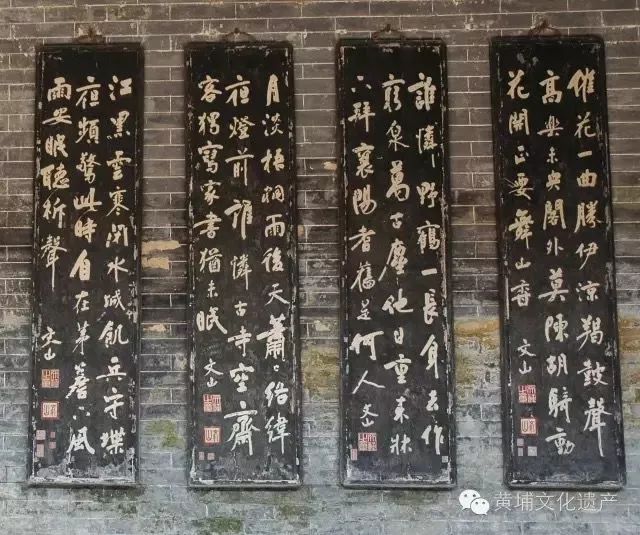 催花一曲勝伊涼羯鼓聲
高興未央閣外莫陳胡騎動
花開正要舞山香 文山
誰憐野鶴一長身去作
窮泉萬古塵他日重來牀
下拜襄陽耆舊是何人 文山
月淡梧桐雨後天蕭〻絡緯
夜燈前誰憐古寺空齋
客獨寫家書猶未眠 文山
江黑雲寒閉水城飢兵守堞
夜頻驚此時自在茅簷下風
雨安眠聽柝聲 文山
黄埔文化遗产